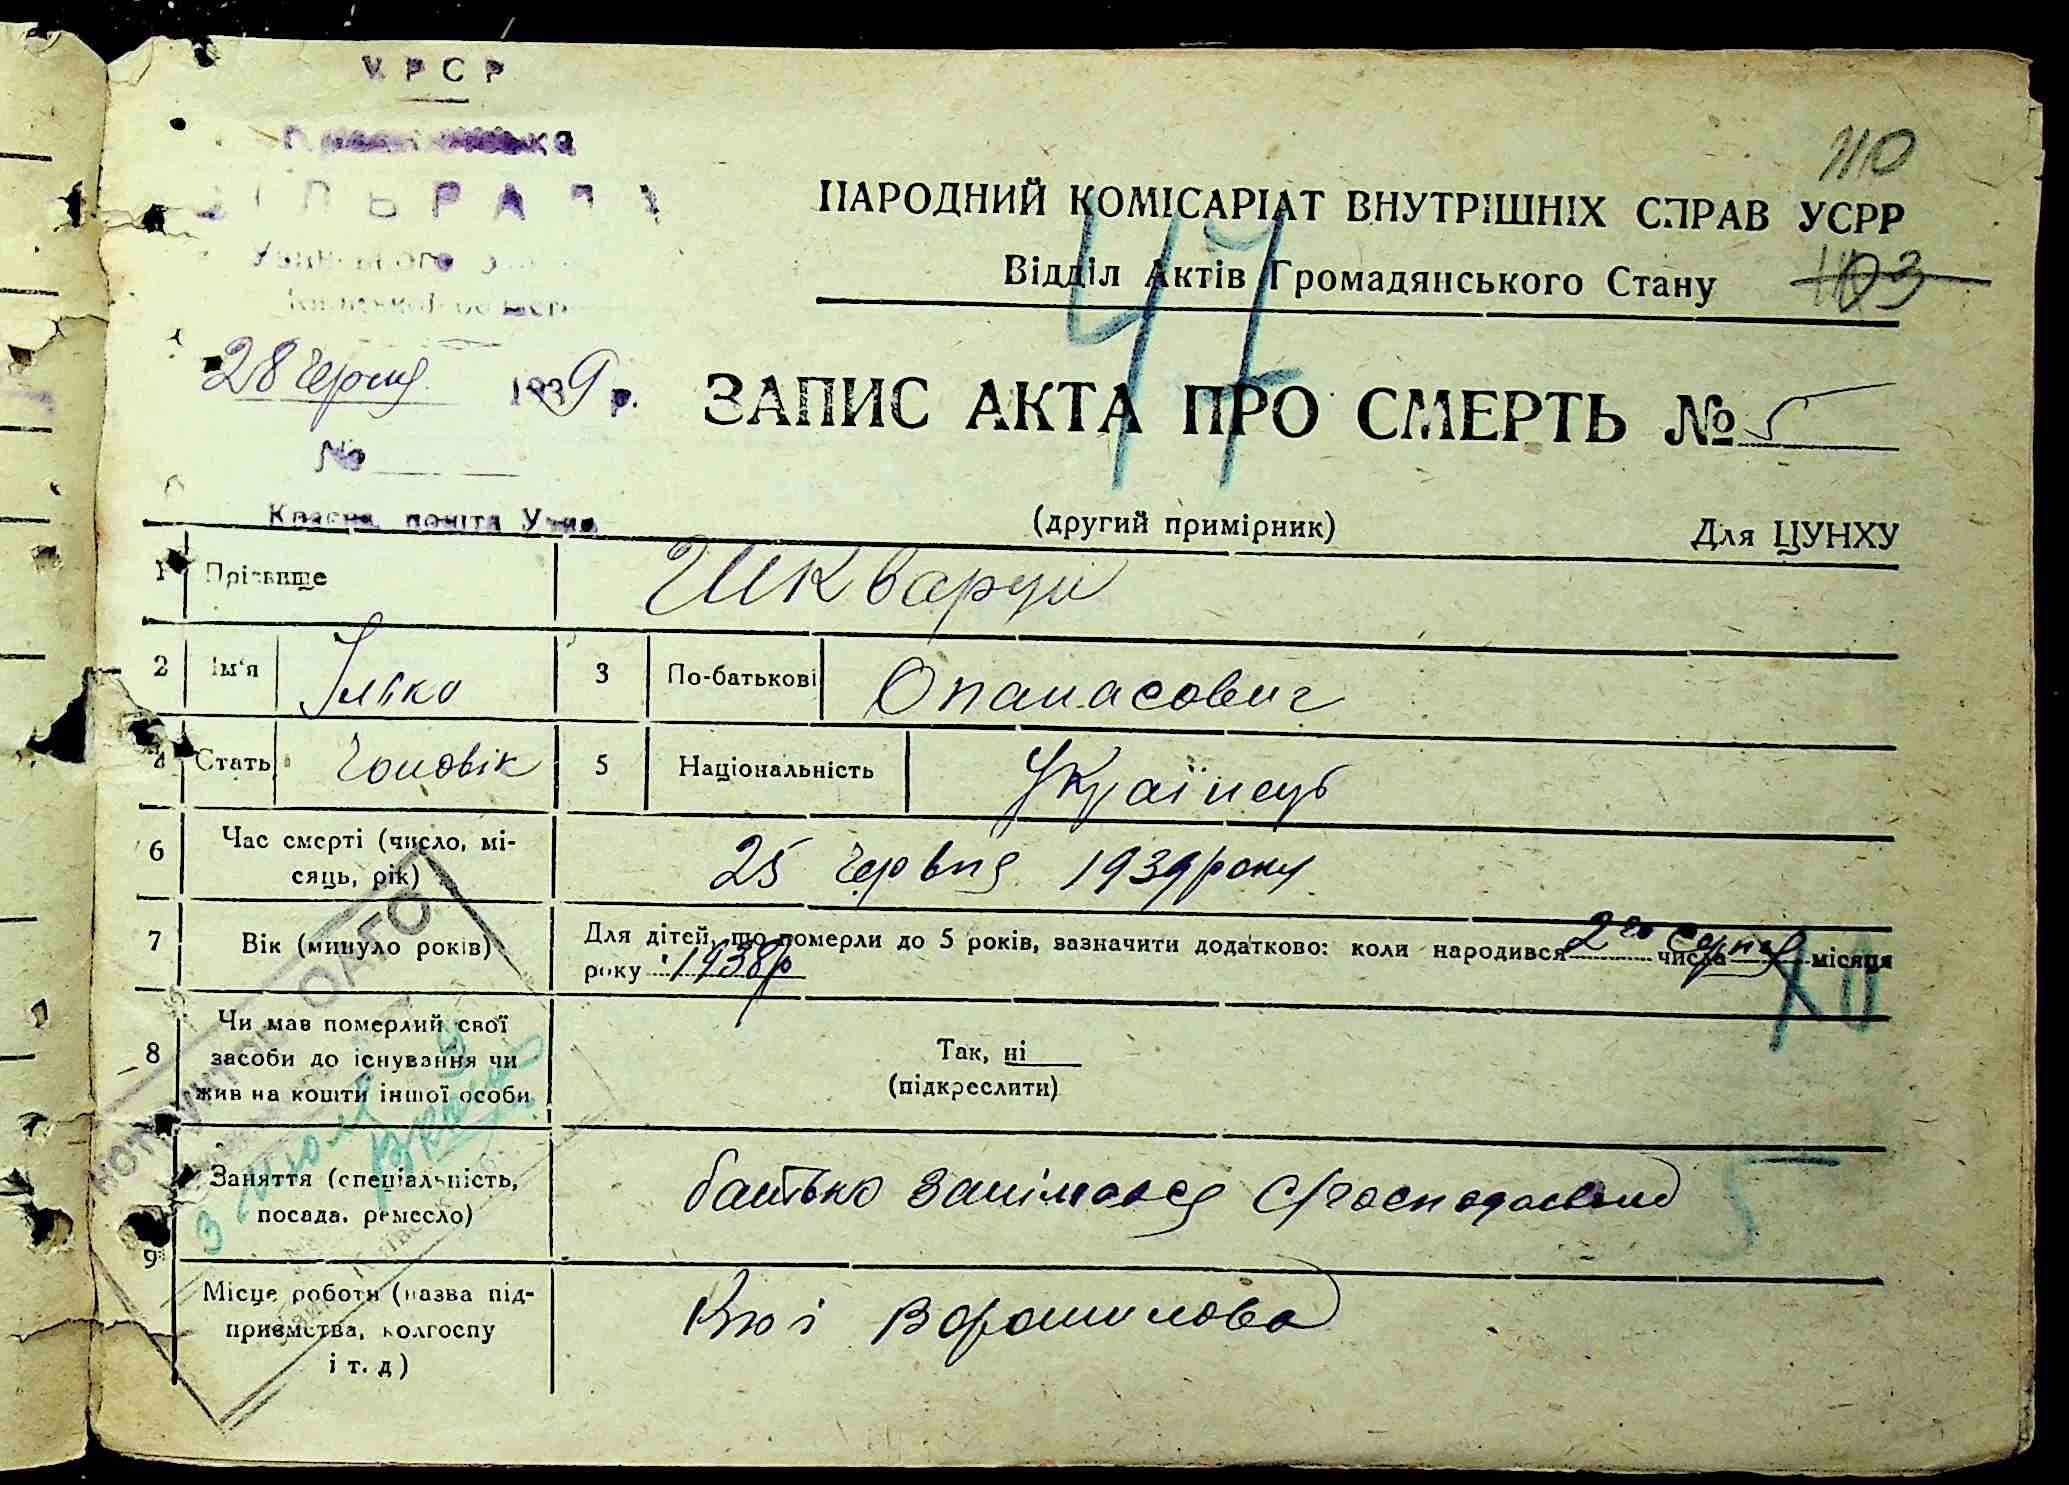 УРСР
СІЛЬРАДА
110
НАРОДНИЙ КОМІСАРІАТ ВНУТРІШНІХ СПРАВ УСРР
Відділ Актів Громадянського Стану
103
47
28 червня 1939 р.
ЗАПИС АКТА ПРО СМЕРТЬ № 5
№
Красна пошта Умань
(другий примірник)
Для ЦУНХУ
1 Прізвище Шкварун
2 Ім'я Ілько 3 По-батькові Опанасович
4 Стать Чоловік 5 Національність Українець
6 Час смерті (число, мі-
сяць, рік) 25 червня 1939 року
7 Вік (минуло років) Для дітей, що померли до 5 років, зазначити додатково: коли народився 2го числа Серпня місяця
року 1938р
8 Чи мав померлий свої
засоби до існування чи
жив на кошти іншої особи
Так, ні
(підкреслити)
9 Заняття (спеціальність,
посада, ремесло) батько занімався
5
Місце роботи (назва під-
приємства, колгоспу
і т. д) Ворошилова